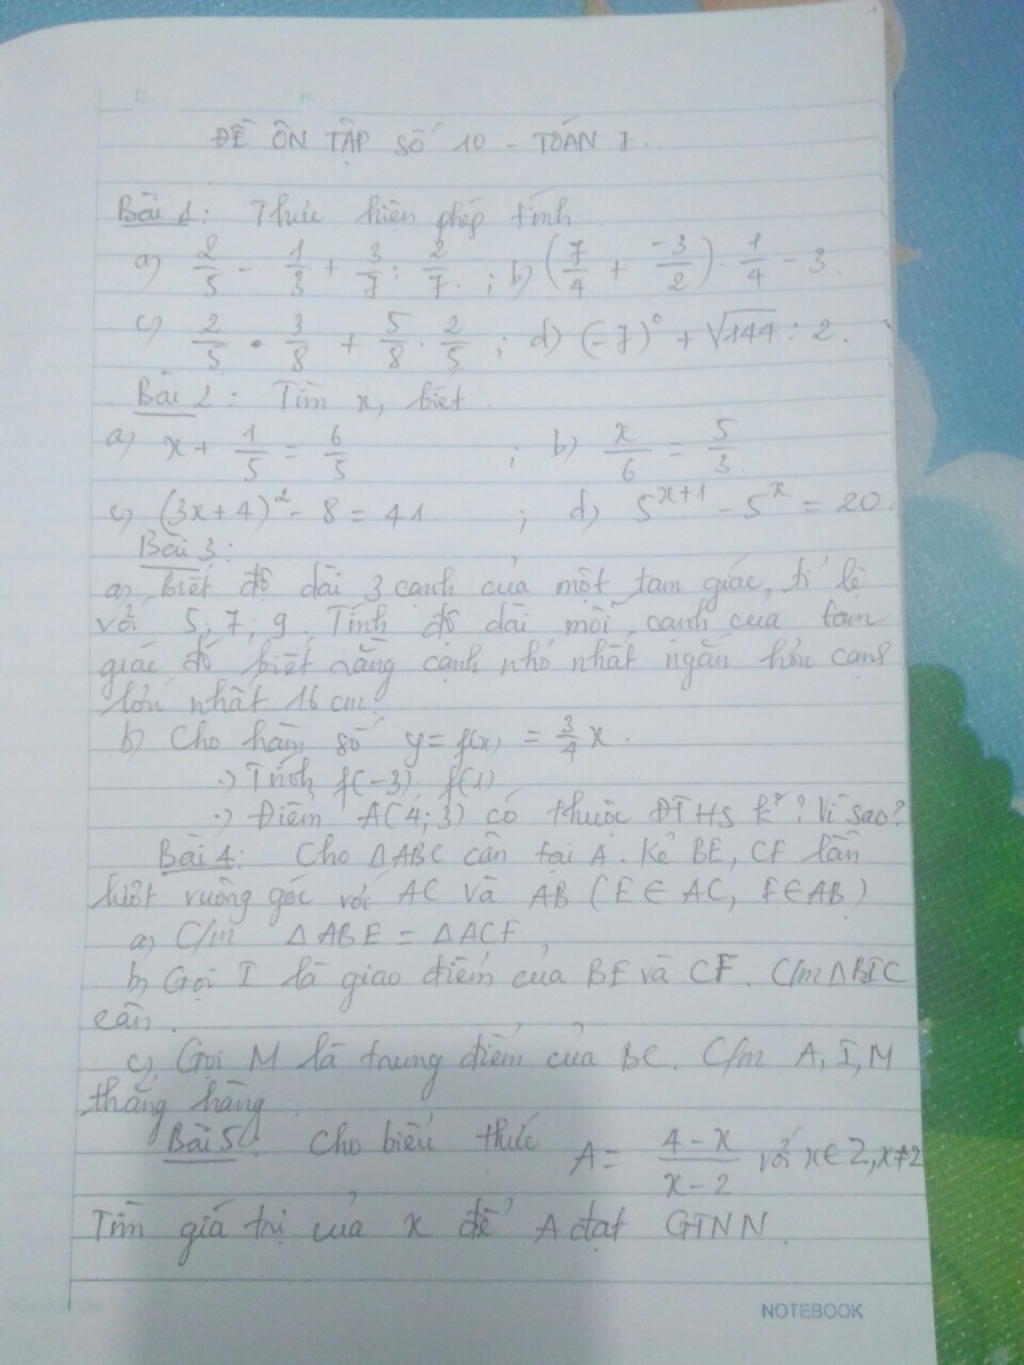 ĐỀ ÔN TẬP SỐ 10 - TOÁN 7.
Bài 1: Thực hiện phép tính
a) 2/5 - 1/3 + 3/7 : 2/7 ; b) (7/4 + -3/2) . 1/4 - 3.
c) 2/5 . 3/8 + 5/8 . 2/5 ; d) (-7)⁰ + √144 : 2.
Bài 2: Tìm x, biết
a) x + 1/5 = 6/5 ; b) x/6 = 5/3.
c) (3x+4)² - 8 = 41 ; d) 5^(x+1) - 5^x = 20.
Bài 3:
a) Biết độ dài 3 cạnh của một tam giác, tỉ lệ
với 5; 7; 9. Tính độ dài mỗi cạnh của tam
giác đó biết rằng cạnh nhỏ nhất ngắn hơn cạnh
lớn nhất 16 cm.
b) Cho hàm số y = f(x) = 3/4 x.
.) Tính f(-3) f(1)
.) Điểm A(4; 3) có thuộc ĐTHS k°? Vì sao?
Bài 4: Cho ΔABC cân tại A. Kẻ BE, CF lần
lượt vuông góc với AC và AB (E ∈ AC, F ∈ AB)
a) C/m ΔABE = ΔACF,
b) Gọi I là giao điểm của BE và CF. C/m ΔBIC
cân.
c) Gọi M là trung điểm của BC. C/m A, I, M
thẳng hàng.
Bài 5: Cho biểu thức A = 4-x/x-2 với x ∈ Z, x ≠ 2
Tìm giá trị của x để A đạt GTNN.
NOTEBOOK